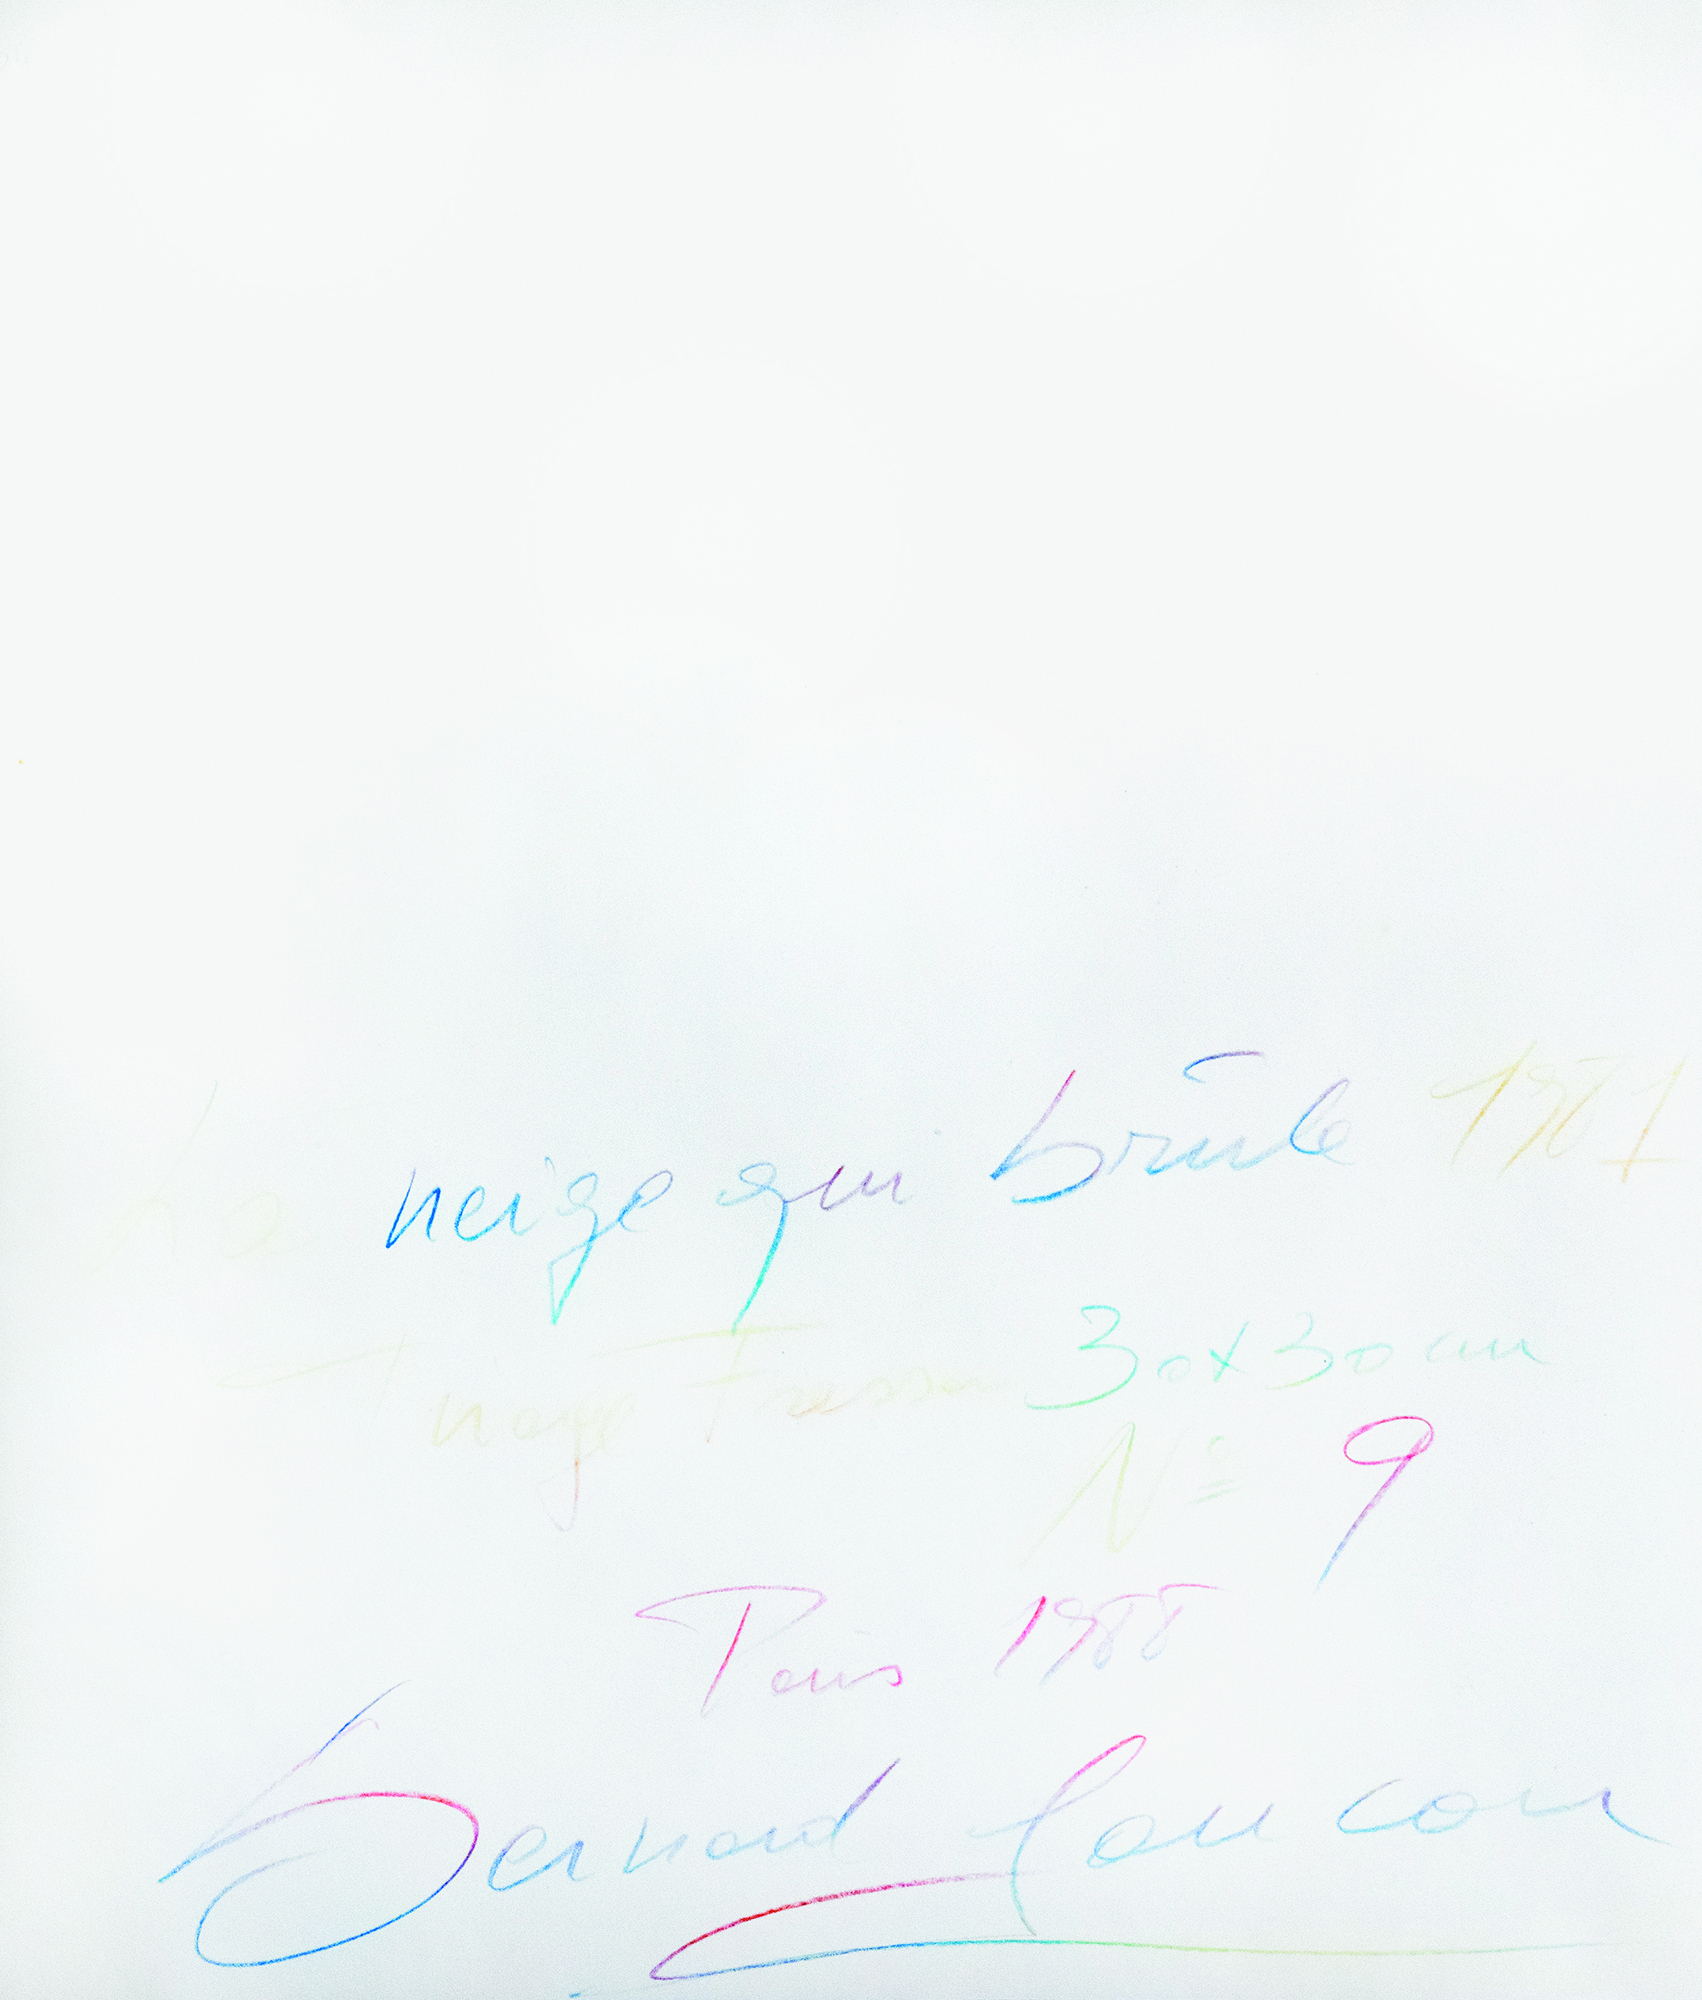 La neige qui brûle 1981
Tirage Fresson 30x30 cm
N° 9
Paris 1988
bernard faucon